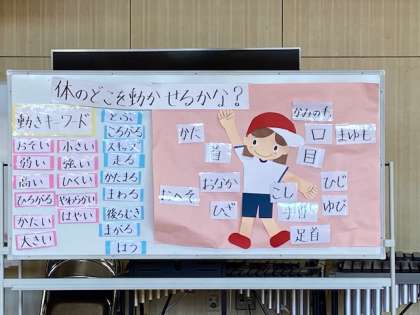 体のどこを動かせるかな?
動きキーワード
おそい
小さい
弱い
強い
高い
ひくい
ひろがる
やわらかい
かたい
はやい
大きい
とぶ
ころがる
スキップ
走る
かたまる
まわる
後ろむき
まがる
はう
かみのけ
かた
口
まゆも
首
目
おなか
こし
ひじ
おへそ
ひざ
ゆび
足首